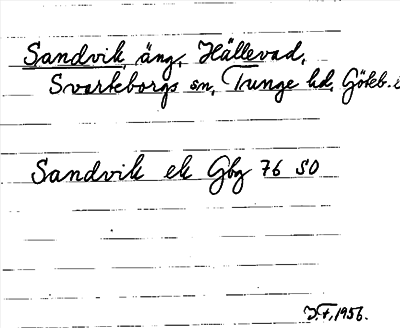 Sandvik, äng, Hällevad,
Svarteborgs sn, Tunge hd, Göteb.
Sandvik ek Gbg 76 SO
1956.